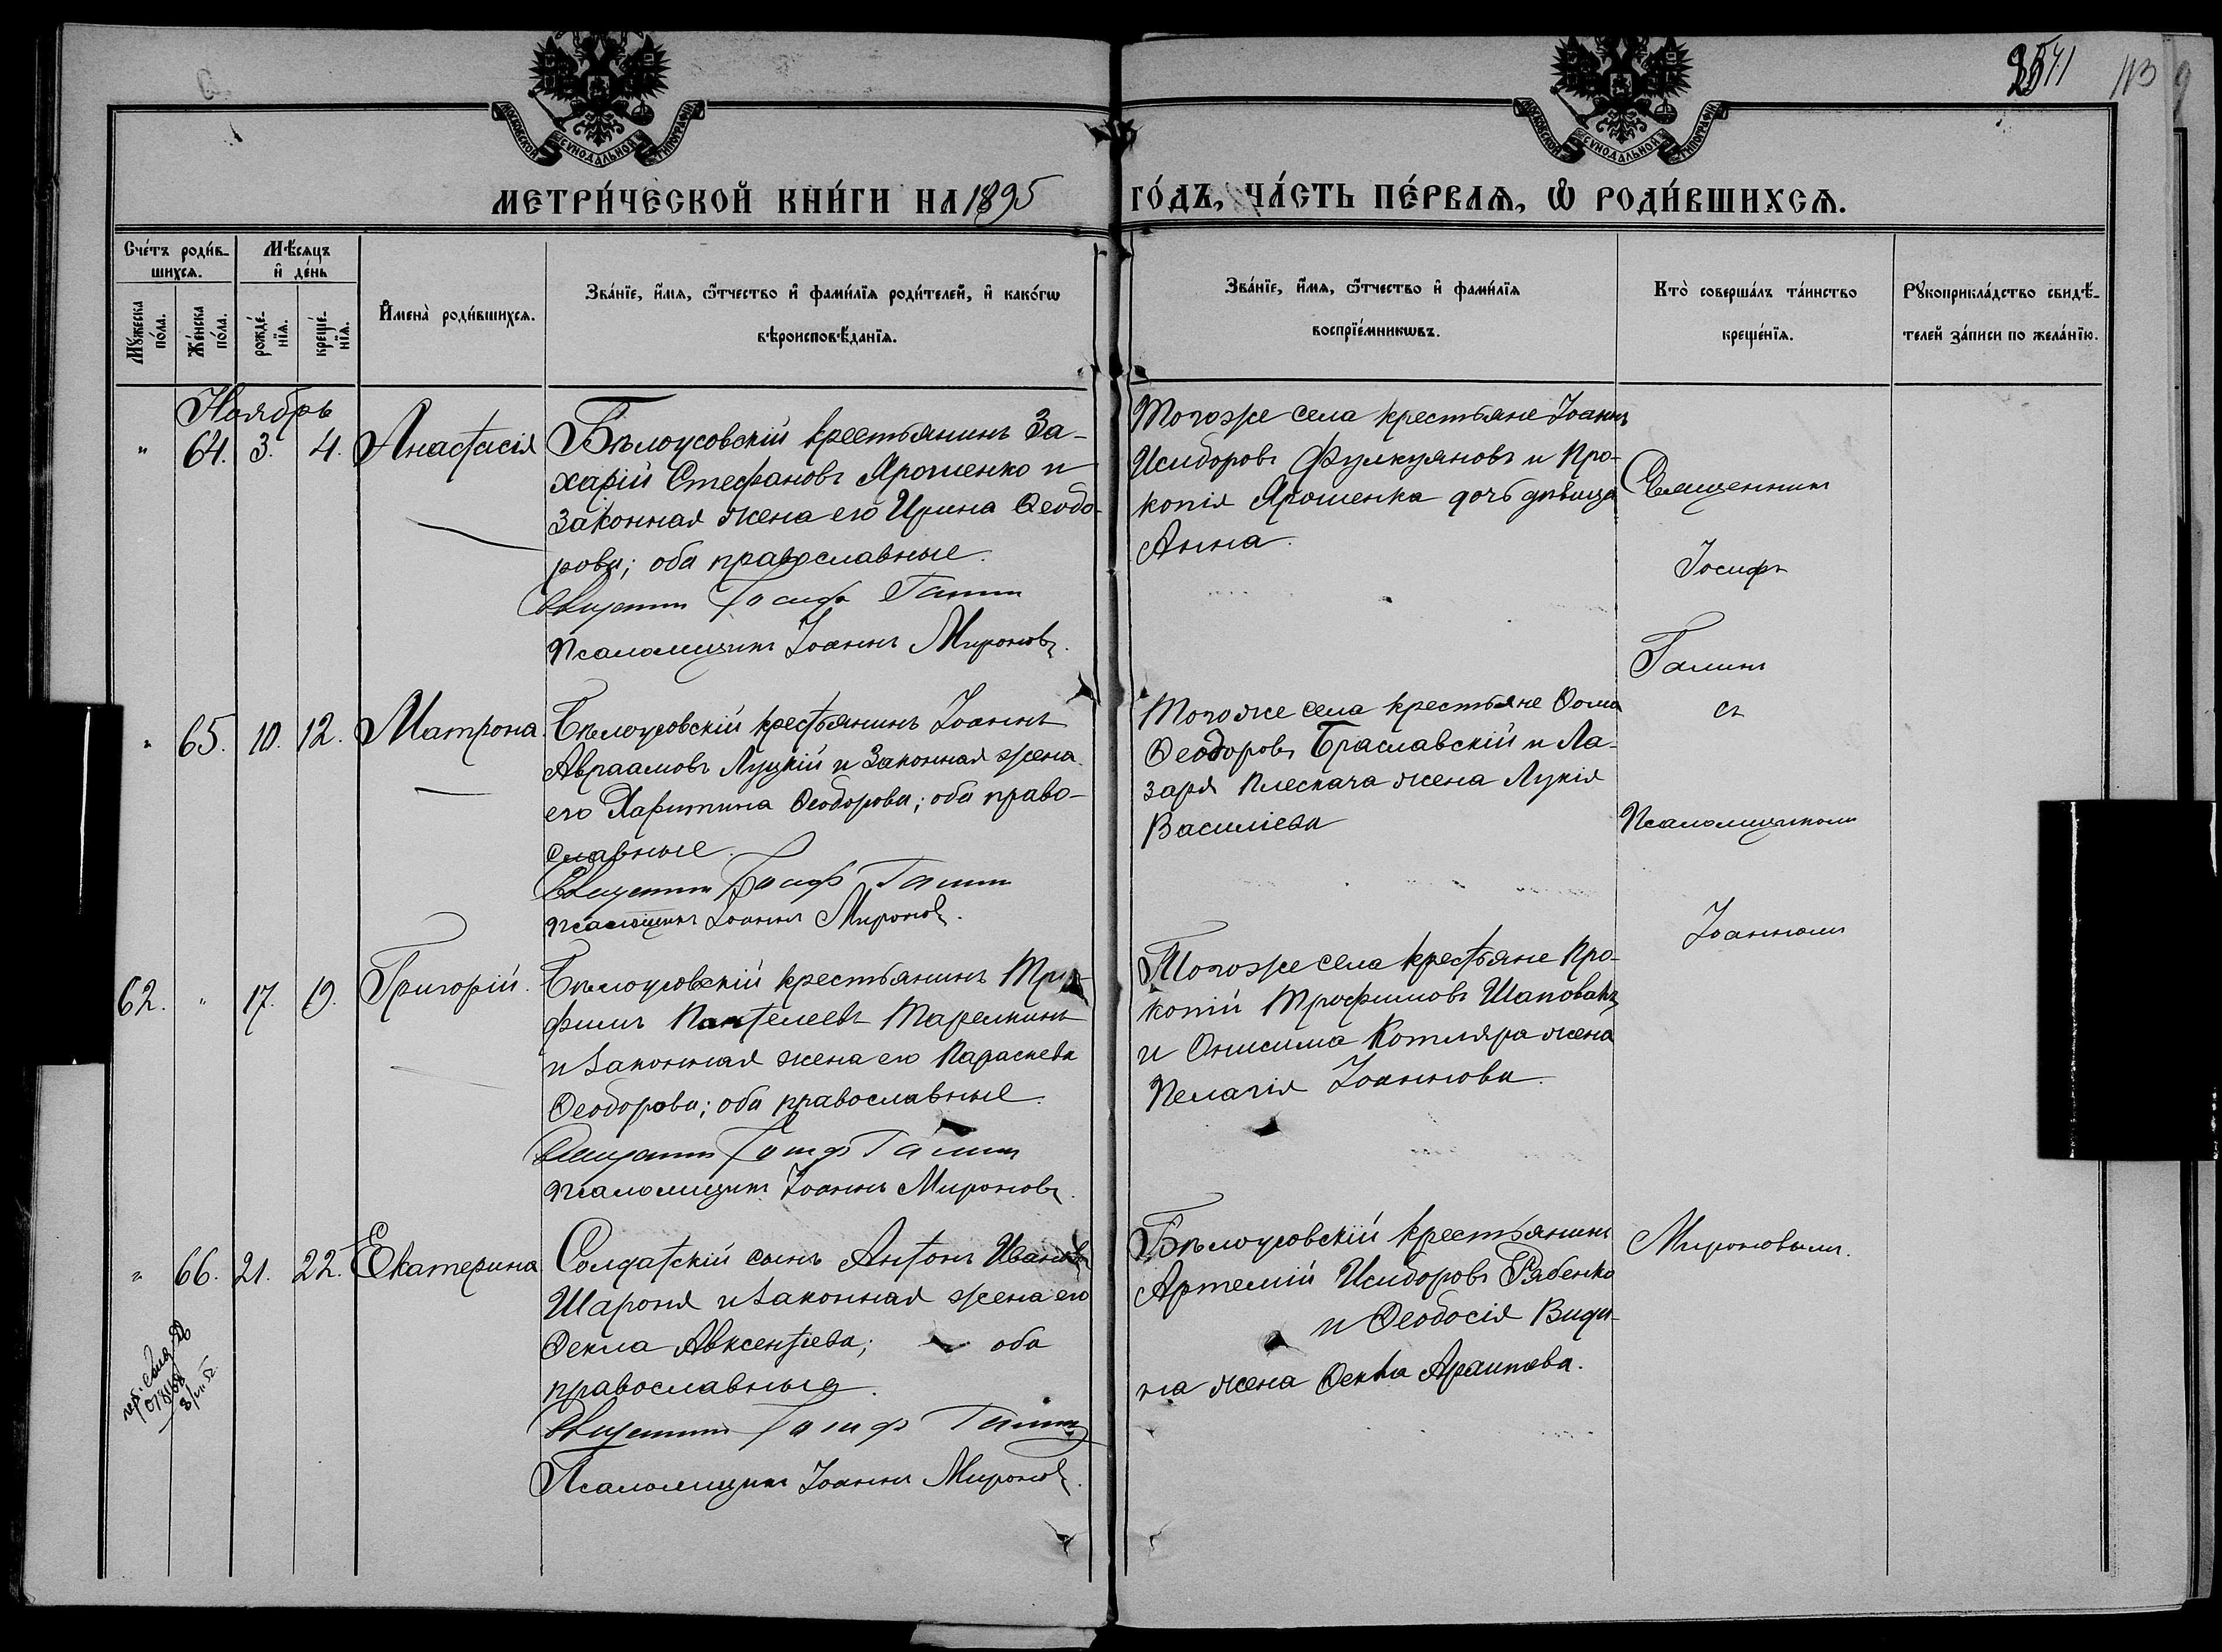 МОСКОВСКОЙ СѴНОДАЛЬНОЙ ТИПОГРАФІИ
МОСКОВСКОЙ СѴНОДАЛЬНОЙ ТИПОГРАФІИ
113
МЕТРИ́ЧЕСКОЙ КНИ́ГИ НА 1895 ГО́ДЪ, ЧА́СТЬ ПЕ́РВАѦ, Ѡ҆ РОДИ́ВШИХСѦ.
Сче́тъ роди́в-
шихсѧ.
Мꙋ́жеска по́ла.
Же́нска по́ла.
Мѣ́сѧцъ
и҆ де́нь
рожде́-
нїѧ.
креще́-
нїѧ.
И҆мена̀ роди́вшихсѧ.
Зва́нїе, и҆́мѧ, ѻ҆́тчество и҆ фами́лїѧ роди́телей, и҆ како́гѡ
вѣроисповѣ́данїѧ.
Зва́нїе, и҆́мѧ, ѻ҆́тчество и҆ фами́лїѧ
воспрїе́мникѡвъ.
Кто̀ соверша́лъ та́инство
креще́нїѧ.
Рꙋкоприкла́дство свидѣ́-
телей за́писи по жела́нїю.
Ноябрь
" 64. 3. 4. Анастасія
Бѣлоусовскій крестьянинъ За-
харій Стефановъ Ярошенко и
законная жена его Ирина Ѳеодо-
рова; оба православные.
Священникъ Іосифъ Галинъ
Псаломщикъ Іоаннъ Мироновъ.
Тогоже села крестьяне Іоаннъ
Исидоровъ Фулкуяновъ и Про-
копія Ярошенка дочь дѣвица
Анна.
" 65. 10. 12. Матрона.
Бѣлоусовскій крестьянинъ Іоаннъ
Авраамовъ Луцкій и законная жена
его Харитина Ѳеодорова; оба право-
славные.
Священникъ Іосифъ Галинъ
псаломщикъ Іоаннъ Мироновъ.
Тогоже села крестьяне Ѳома
Ѳеодоровъ Браславскій и Ла-
заря Плескача жена Лукія
Василіева
62. " 17. 19. Григорій.
Бѣлоусовскій крестьянинъ Тро-
фимъ Пантелеевъ Тарелкинъ
и законная жена его Параскева
Ѳеодорова; оба православные.
Священникъ Іосифъ Галинъ
псаломщикъ Іоаннъ Мироновъ.
Тогоже села крестьяне Про-
копій Трофимовъ Шаповалъ
и Онисима Котляра жена
Пелагія Іоаннова.
" 66. 21. 22. Екатерина
Солдатскій сынъ Антонъ Ивановъ
Шароня и законная жена его
Ѳекла Авксентіева; оба
православные.
Священникъ Іосифъ Галинъ
Псаломщикъ Іоаннъ Мироновъ.
Бѣлоусовскій крестьянинъ
Артемій Исидоровъ Рябенко
и Ѳеодосія Види-
на жена Ѳекла
Священникъ
Іосифъ
Галинъ
съ
Псаломщикомъ
Іоанномъ
Мироновымъ.